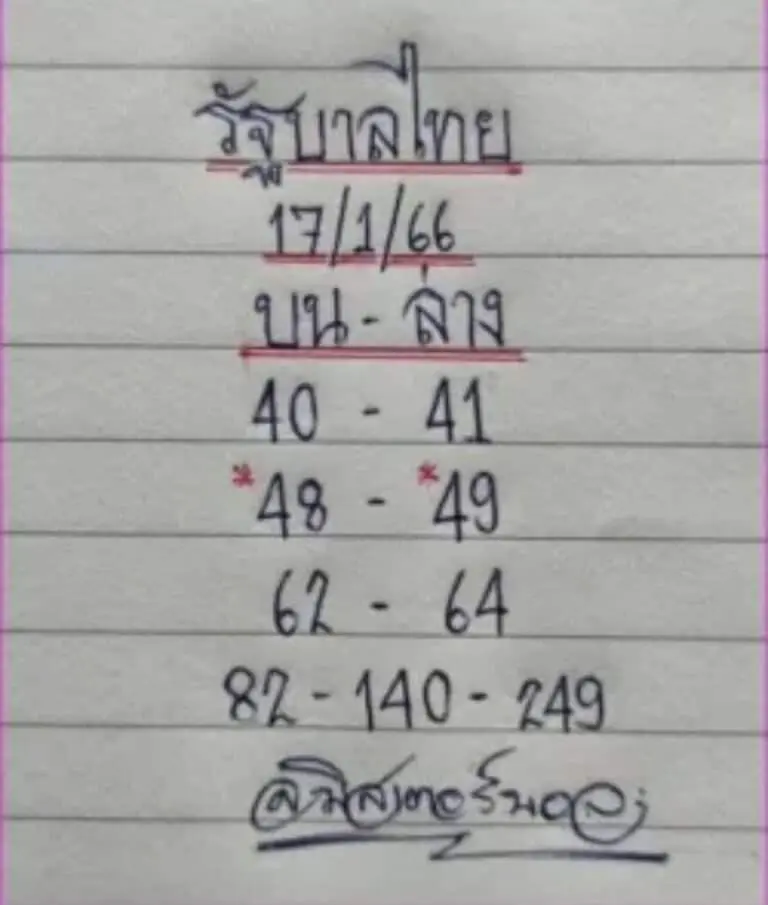 รัฐบาลไทย
17/1/66
บน - ล่าง
40 - 41
*48 - *49
62 - 64
82 - 140 - 249